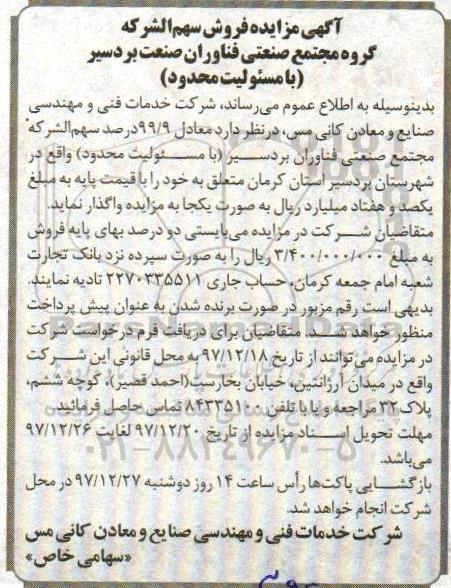 آگهی مزایده فروش سهم الشرکه
گروه مجتمع صنعتی فناوران صنعت بردسیر
(با مسئولیت محدود)
بدینوسیله به اطلاع عموم می‌رساند، شرکت خدمات فنی و مهندسی
صنایع و معادن کانی مس، درنظر دارد معادل ۹۹/۹درصد سهم‌الشرکه
مجتمع صنعتی فناوران بردسـیر (با مسـئولیت محدود) واقع در
شهرستان بردسیر استان کرمان متعلق به خود را با قیمت پایه به مبلغ
یکصد و هفتاد میلیارد ریال به صورت یکجا به مزایده واگذار نماید.
متقاضیان شرکت در مزایده می‌بایستی دو درصد بهای پایه فروش
به مبلغ ۳/۴۰۰/۰۰۰/۰۰۰ ریال را به صورت سپرده نزد بانک تجارت
شعبه امام جمعه کرمان، حساب جاری ۲۲۷۰۳۳۵۵۱۱ تادیه نمایند.
بدیهی است رقم مزبور در صورت برنده شدن به عنوان پیش پرداخت
منظور خواهد شد. متقاضیان برای دریافت فرم درخواست شرکت
در مزایده می‌توانند از تاریخ ۹۷/۱۲/۱۸ به محل قانونی این شرکت
واقع در میدان آرژانتین، خیابان بخارست(احمد قصیر)، کوچه ششم،
پلاک ۳۲ مراجعه و یا با تلفن ۸۴۳۳۵۱۰۰ تماس حاصل فرمائید.
مهلت تحویل اسناد مزایده از تاریخ ۹۷/۱۲/۲۰ لغایت ۹۷/۱۲/۲۶
می‌باشد.
بازگشایی پاکت‌ها رأس ساعت ۱۴ روز دوشنبه ۹۷/۱۲/۲۷ در محل
شرکت انجام خواهد شد.
شرکت خدمات فنی و مهندسی صنایع و معادن کانی مس
«سهامی خاص»
۰۲۱-۸۸۳۴۹۶۷۰-۵